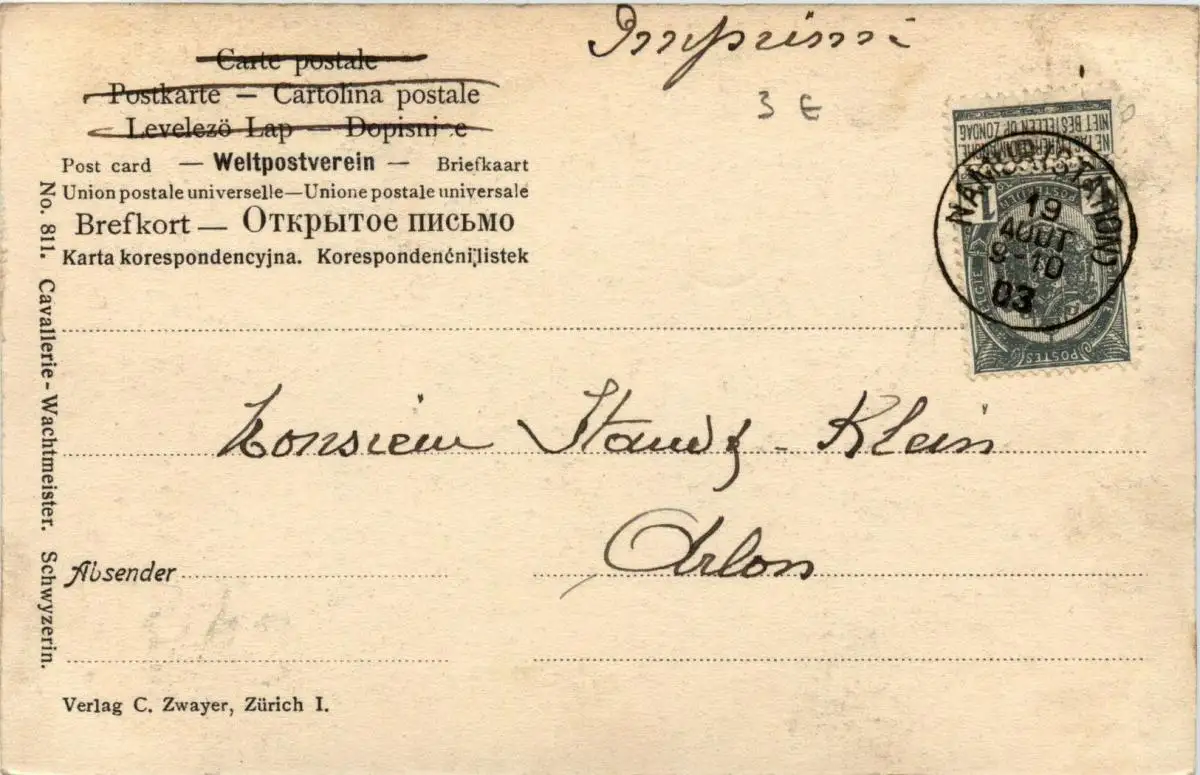 Imprimé
3 €
Carte postale
Postkarte — Cartolina postale
Levelezö Lap — Dopisnice
Post card — Weltpostverein — Briefkaart
Union postale universelle—Unione postale universale
Brefkort — Открытое письмо
Karta korespondencyjna. Korespondenčni listek
NIET BESTELLEN OP ZONDAG
NAMUR (STATION)
19
AOUT
9-10
03
1
POSTES
Monsieur Klein
Arlon
Absender
Verlag C. Zwayer, Zürich I.
No. 811. Cavallerie-Wachtmeister. Schwyzerin.